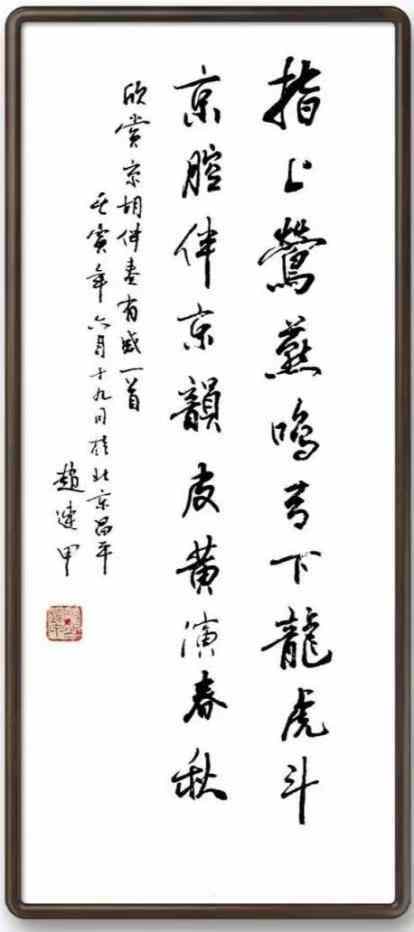 指上鶯燕鳴弓下龍虎斗
京腔伴京韻皮黄演春秋
欣赏京胡伴奏有感一首
壬寅年六月十九日於北京昌平
趙建甲